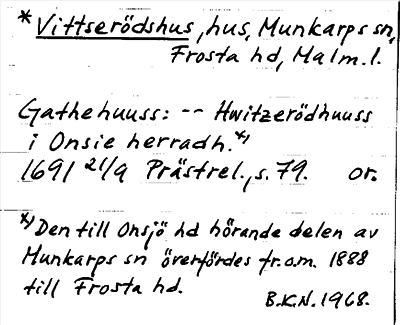 * Vittserödshus, hus, Munkarps sn,
Frosta hd, Malm. l.
Gathehuuss: -- Hwitzerödhuuss
i Onsie herradh.*)
1691 21/9 Prästrel., s. 79. or.
*) Den till Onsjö hd hörande delen av
Munkarps sn överfördes fr.o.m. 1888
till Frosta hd.
B.K.N. 1968.